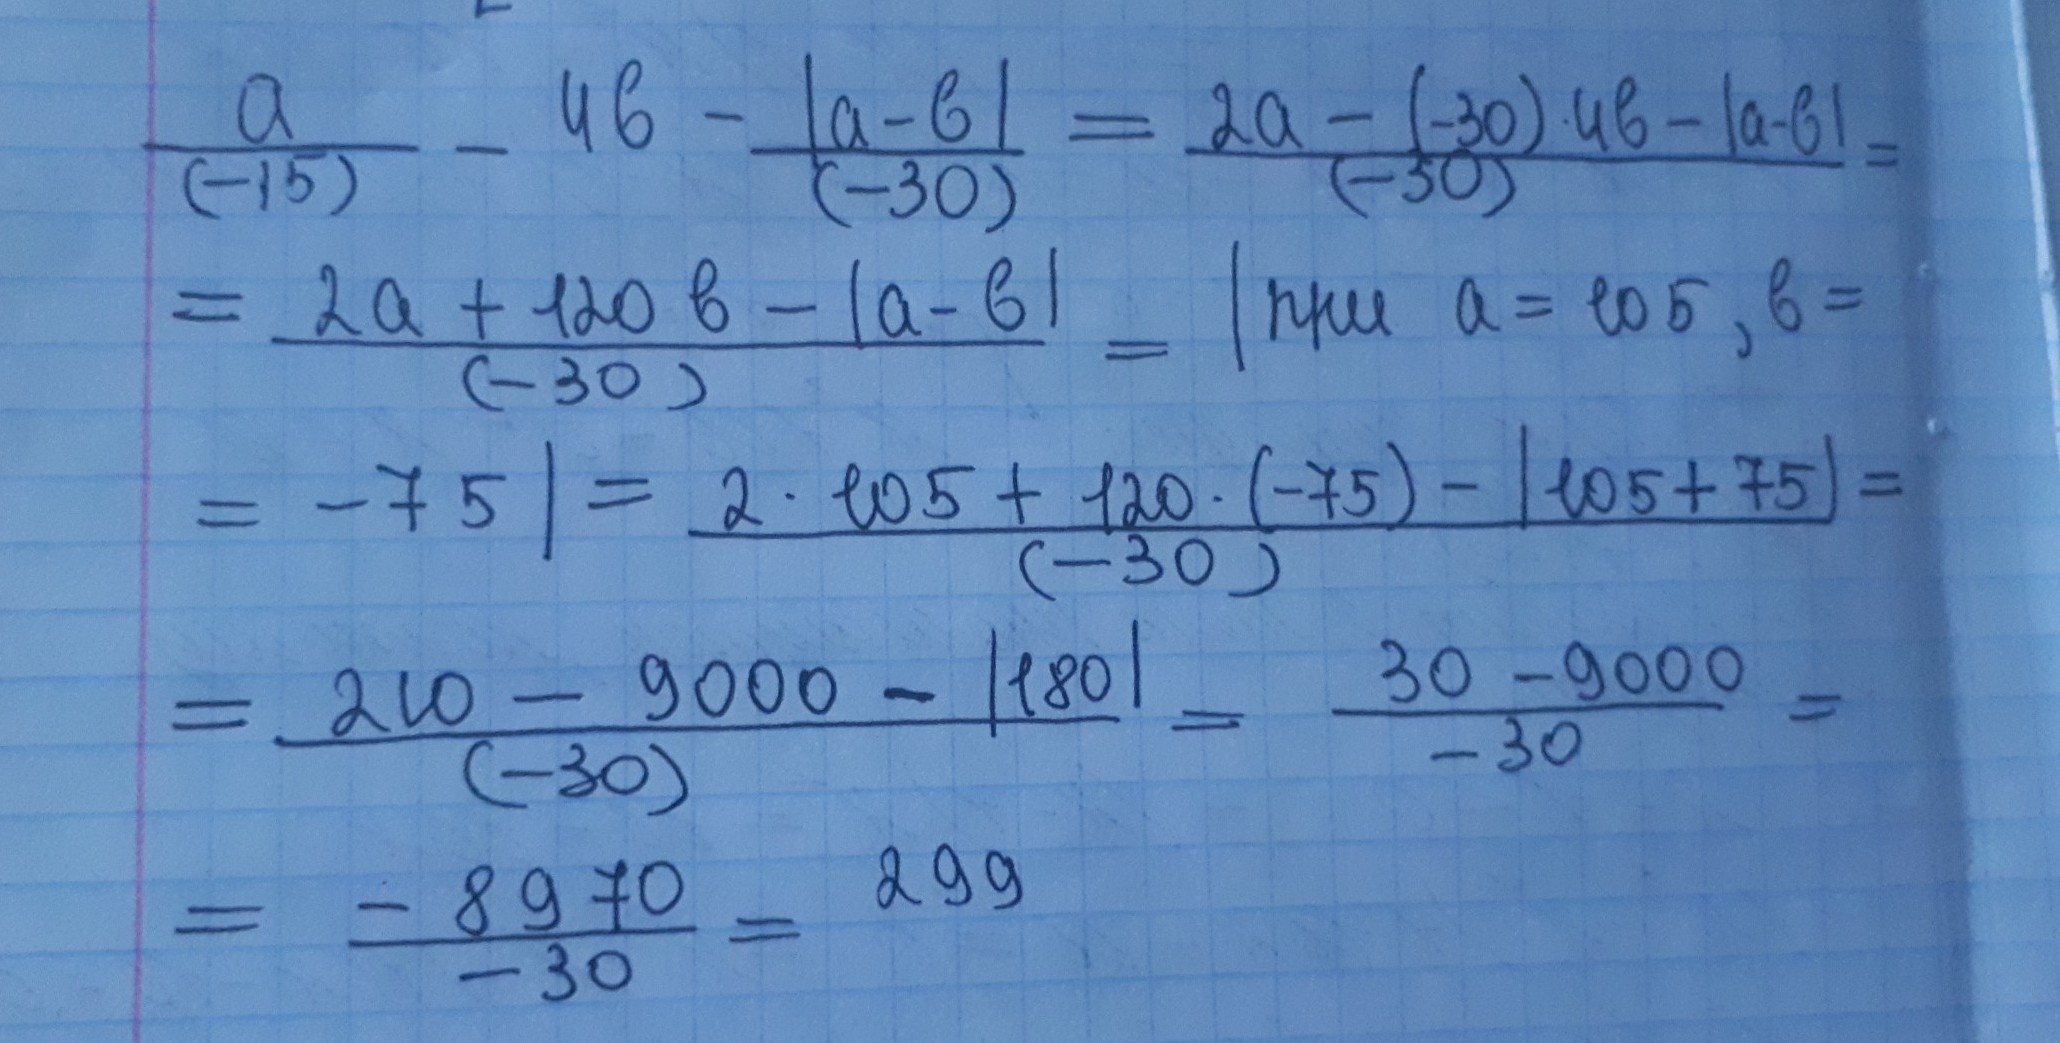 a/(-15) - 4в - |a-в|/(-30) = (2a - (-30)·4в - |a-в|)/(-30) =
= (2a + 120в - |a-в|)/(-30) = | при a = 105, в =
= -75 | = (2·105 + 120·(-75) - |105+75|)/(-30) =
= (210 - 9000 - |180|)/(-30) = (30 - 9000)/-30 =
= -8970/-30 = 299